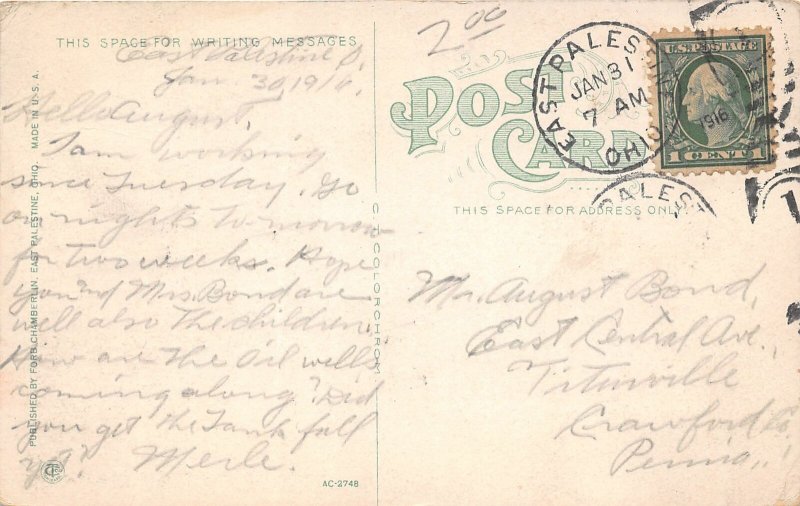 THIS SPACE FOR WRITING MESSAGES
East Palestine O,
Jan 30, 1916.
Hello August,
I am working
since Tuesday. Go
on nights to-morrow
for two weeks. Hope
you and Mrs. Bond are
well also the children.
How are the oil wells
coming along? Did
you get the tank full
yet? Merle.
PUBLISHED BY FORD CHAMBERLIN, EAST PALESTINE, OHIO. MADE IN U. S. A.
C.T. COLORCHROM
AC-2748
2 00
POST
CARD
THIS SPACE FOR ADDRESS ONLY
EAST PALESTINE
JAN 31
7 AM
1916
OHIO
U.S. POSTAGE
1 CENT 1
PALES
Mr. August Bond,
East Central Ave.,
Titusville
Crawford Co.
Penna.